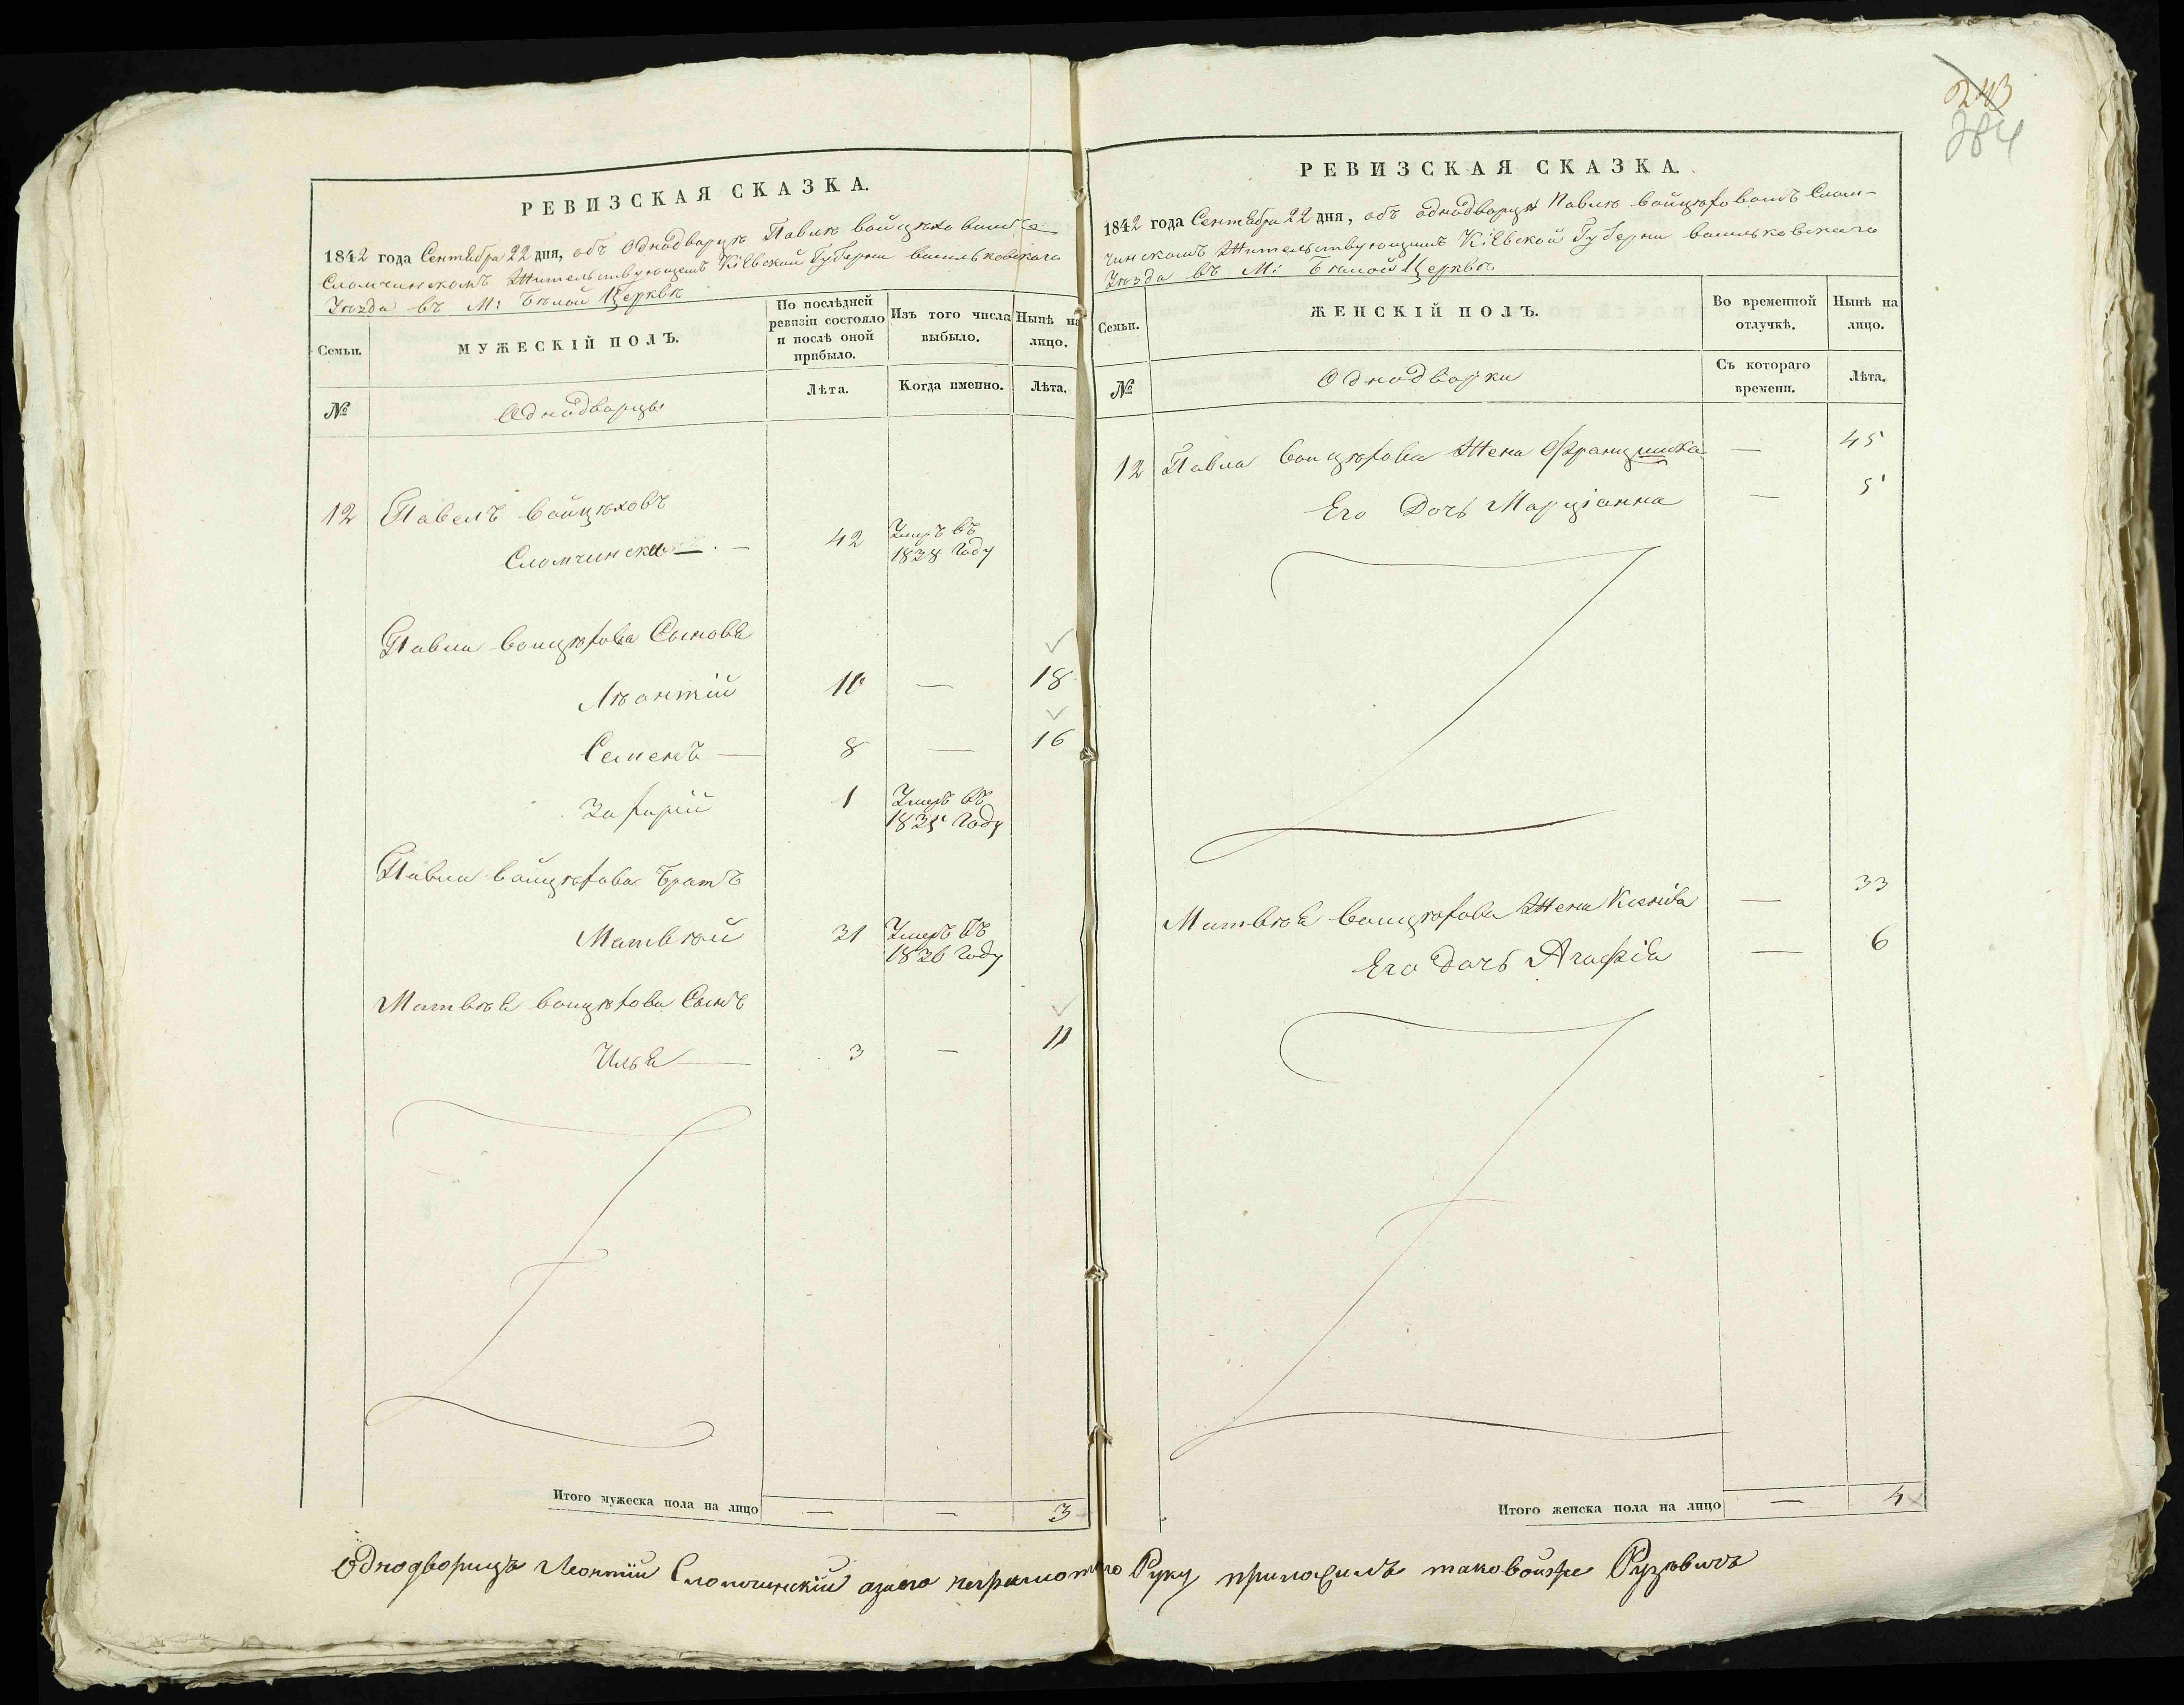 243
384
РЕВИЗСКАЯ СКАЗКА.
1842 года Сентября 22 дня, объ Однодворцѣ Павлѣ Войцѣховомъ
Сломчинскомъ Жительствующемъ Кіевской Губерніи Васильковскаго
Уѣзда въ М: Бѣлой Церквѣ
Семьи.
МУЖЕСКІЙ ПОЛЪ.
По послѣдней ревизіи состояло и послѣ оной прибыло.
Изъ того числа выбыло.
Нынѣ на лицо.
№
Однодворцы
Лѣта.
Когда именно.
Лѣта.
12 Павелъ Войцѣховъ
Сломчински — 42 Умеръ въ
1838 Году
Павла Войцѣхова Сыновя
Лѣонтій 10 — 18
Семенъ — 8 — 16
Захарій 1 Умеръ въ
1835 Году
Павла Войцѣхова Братъ
Матвѣй 31 Умеръ въ
1836 Году
Матвѣя Войцѣхова Сынъ
Илья — 3 — 11
Итого мужеска пола на лицо — — 3
РЕВИЗСКАЯ СКАЗКА.
1842 года Сентября 22 дня, объ однодворцѣ Павлѣ Войцѣховомъ Слом-
чинскомъ Жительствующимъ Кіевской Губерни Васильковскаго
Уѣзда въ М: Бѣлой Церквѣ
Семьи.
ЖЕНСКІЙ ПОЛЪ.
Во временной отлучкѣ.
Нынѣ на лицо.
№
Однодворки
Съ котораго времени.
Лѣта.
12 Павла Войцѣхова Жена Францишка — 45
Его Дочь Марціанна — 5
Матвѣя Войцѣхова Жена Ксенія — 33
Его Дочь Агафія — 6
Итого женска пола на лицо — 4
Однодворицъ Леонтій Сломчинскій азаего неграмотного Руку приложилъ таковойже